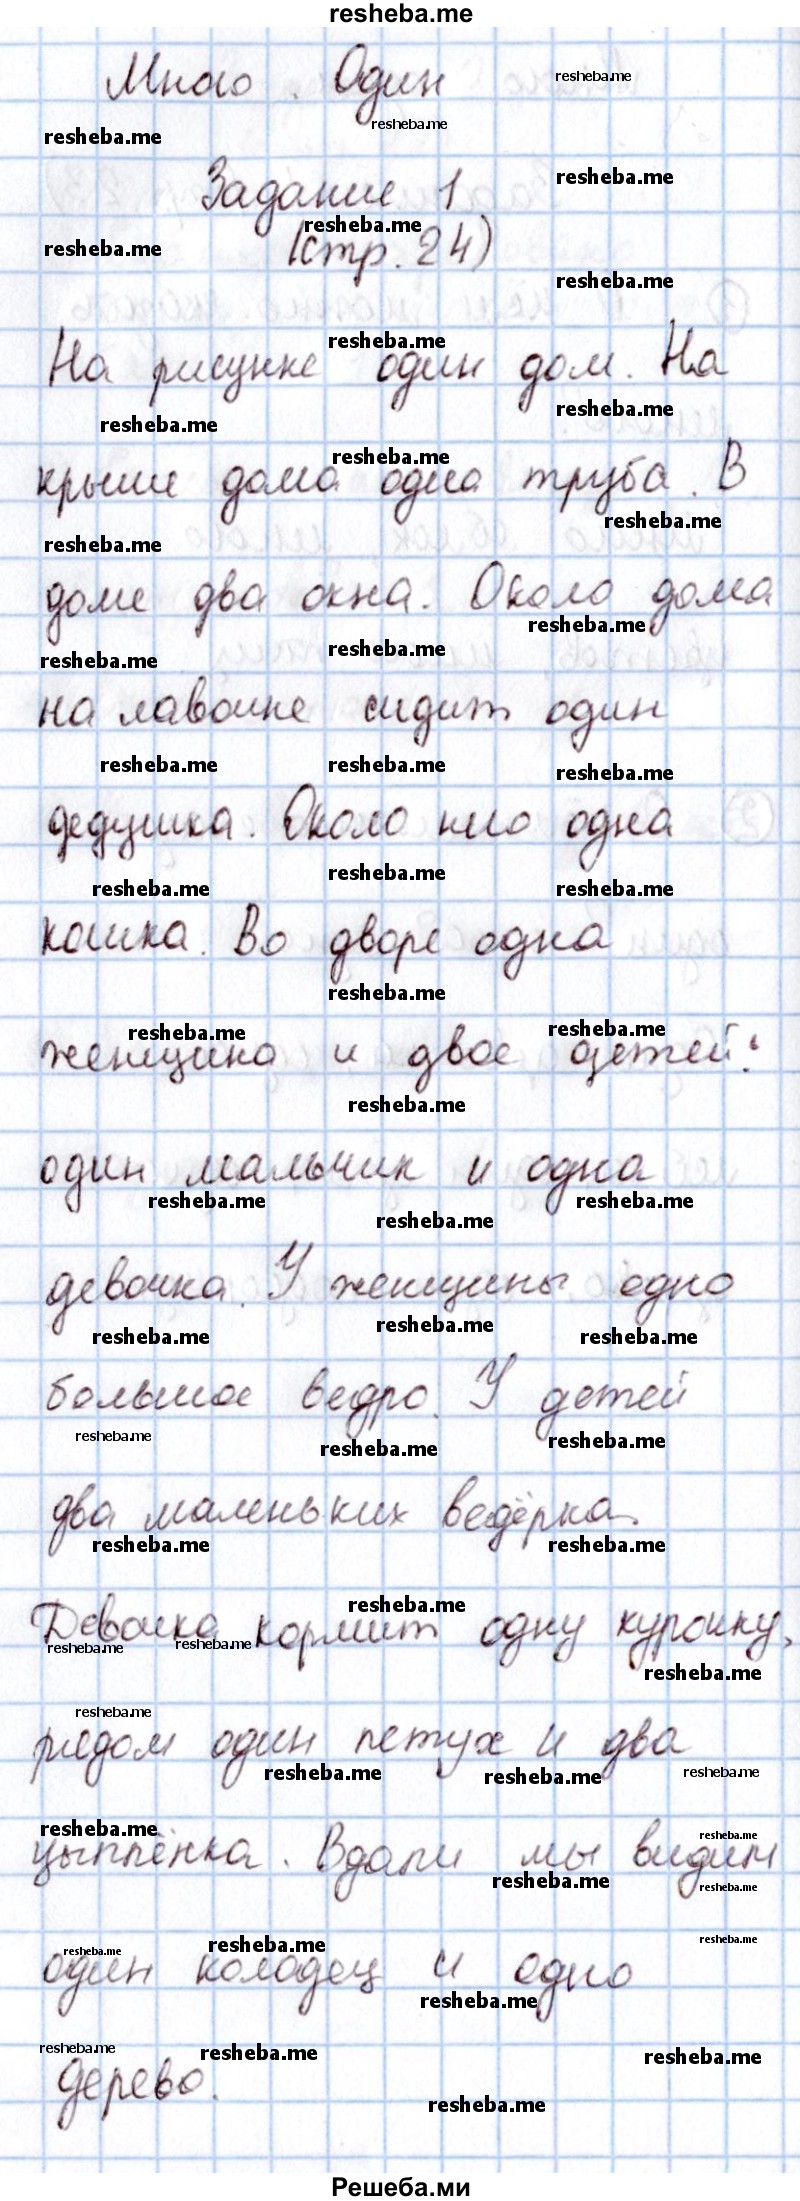 resheba.me
Много. Один
Задание 1
(стр. 24)
На рисунке один дом. На
крыше дома одна труба. В
доме два окна. Около дома
на лавочке сидит один
дедушка. Около него одна
кошка. Во дворе одна
женщина и двое детей:
один мальчик и одна
девочка. У женщины одно
большое ведро. У детей
два маленьких ведёрка.
Девочка кормит одну курочку,
рядом один петух и два
цыплёнка. Вдали мы видим
один колодец и одно
дерево.
Решеба.ми